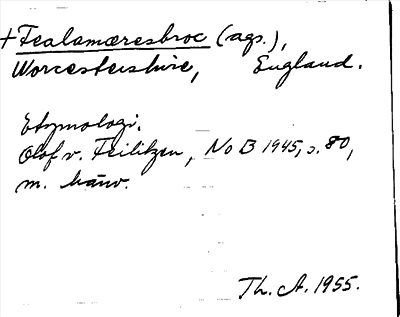 +Fealamæresbroc (ags.),
Worcestershire, England.
Etymologi.
Olof v. Feilitzen, NoB 1945, s. 80,
m. hänv.
Th. A. 1955.